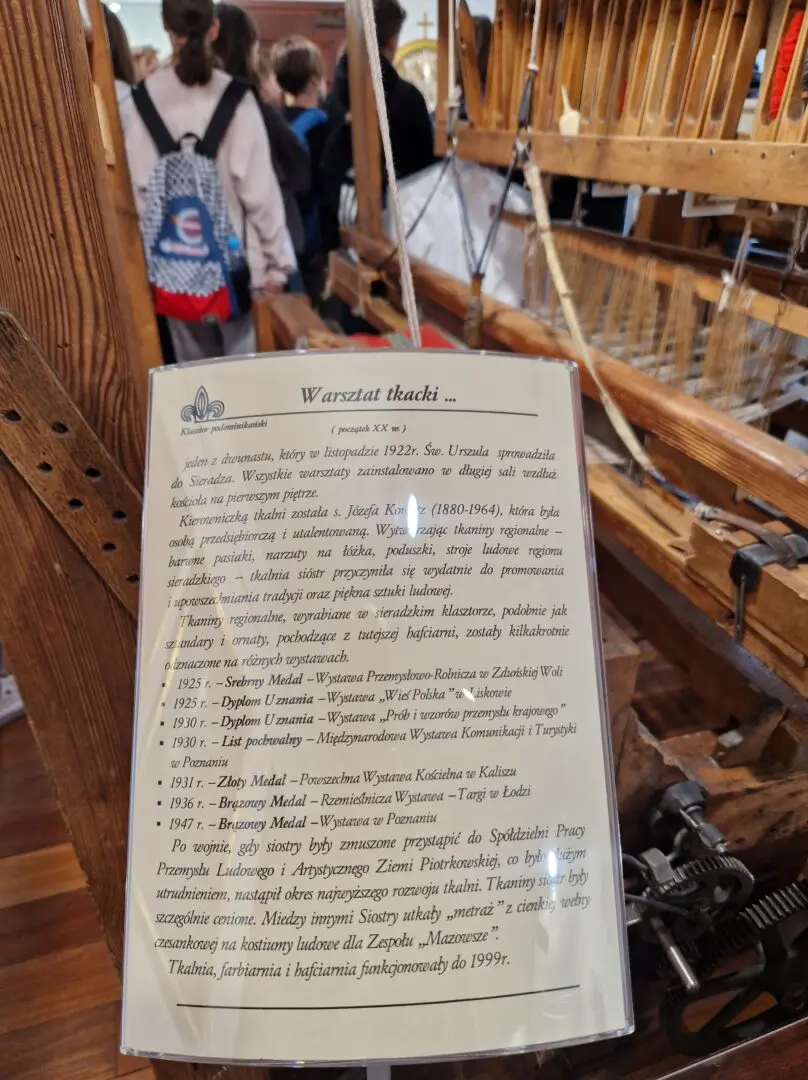 Klasztor podominikański
Warsztat tkacki ...
( początek XX w.)
jeden z dwunastu, który w listopadzie 1922r. Św. Urszula sprowadziła
do Sieradza. Wszystkie warsztaty zainstalowano w długiej sali wzdłuż
kościoła na pierwszym piętrze.
Kierowniczką tkalni została s. Józefa (1880-1964), która była
osobą przedsiębiorczą i utalentowaną. Wytwarzając tkaniny regionalne –
barwne pasiaki, narzuty na łóżka, poduszki, stroje ludowe regionu
sieradzkiego – tkalnia sióstr przyczyniła się wydatnie do promowania
i upowszechniania tradycji oraz piękna sztuki ludowej.
Tkaniny regionalne, wyrabiane w sieradzkim klasztorze, podobnie jak
sztandary i ornaty, pochodzące z tutejszej hafciarni, zostały kilkakrotnie
odznaczone na różnych wystawach.
▪ 1925 r. – Srebrny Medal – Wystawa Przemysłowo-Rolnicza w Zduńskiej Woli
▪ 1925 r. – Dyplom Uznania – Wystawa „Wieś Polska” w Liskowie
▪ 1930 r. – Dyplom Uznania – Wystawa „Prób i wzorów przemysłu krajowego”
▪ 1930 r. – List pochwalny – Międzynarodowa Wystawa Komunikacji i Turystyki
w Poznaniu
▪ 1931 r. – Złoty Medal – Powszechna Wystawa Kościelna w Kaliszu
▪ 1936 r. – Brązowy Medal – Rzemieślnicza Wystawa – Targi w Łodzi
▪ 1947 r. – Brązowy Medal – Wystawa w Poznaniu
Po wojnie, gdy siostry były zmuszone przystąpić do Spółdzielni Pracy
Przemysłu Ludowego i Artystycznego Ziemi Piotrkowskiej, co było dużym
utrudnieniem, nastąpił okres najwyższego rozwoju tkalni. Tkaniny sióstr były
szczególnie cenione. Miedzy innymi Siostry utkały „metraż” z cienkiej wełny
czesankowej na kostiumy ludowe dla Zespołu „Mazowsze”.
Tkalnia, farbiarnia i hafciarnia funkcjonowały do 1999r.